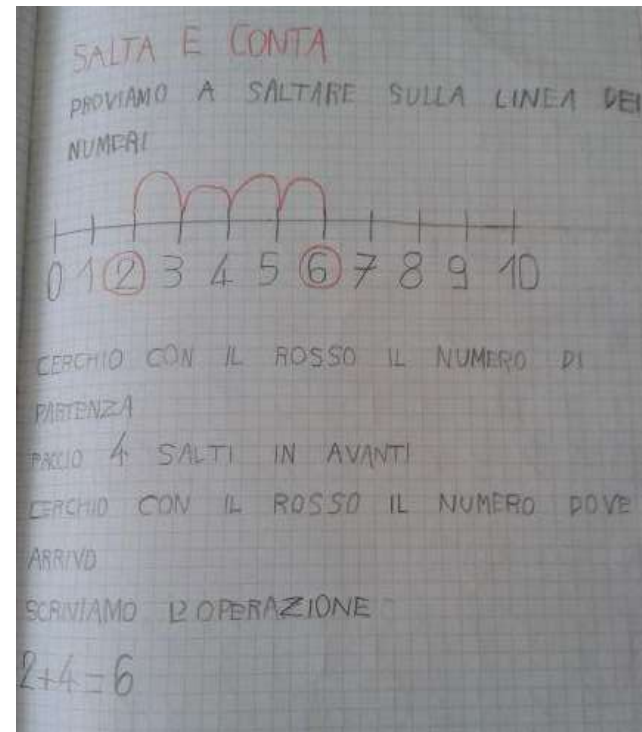 SALTA E CONTA
PROVIAMO A SALTARE SULLA LINEA DEI
NUMERI
0 1 2 3 4 5 6 7 8 9 10
CERCHIO CON IL ROSSO IL NUMERO DI
PARTENZA
FACCIO 4 SALTI IN AVANTI
CERCHIO CON IL ROSSO IL NUMERO DOVE
ARRIVO
SCRIVIAMO L'OPERAZIONE
2+4=6